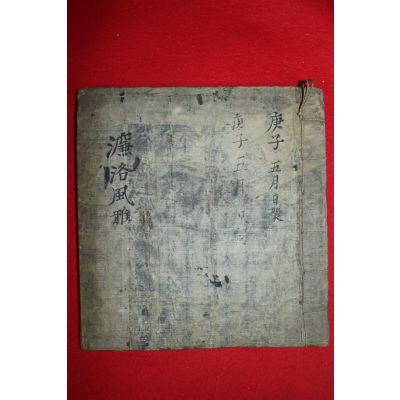 庚子 五月日
庚子 五月
濂洛風雅